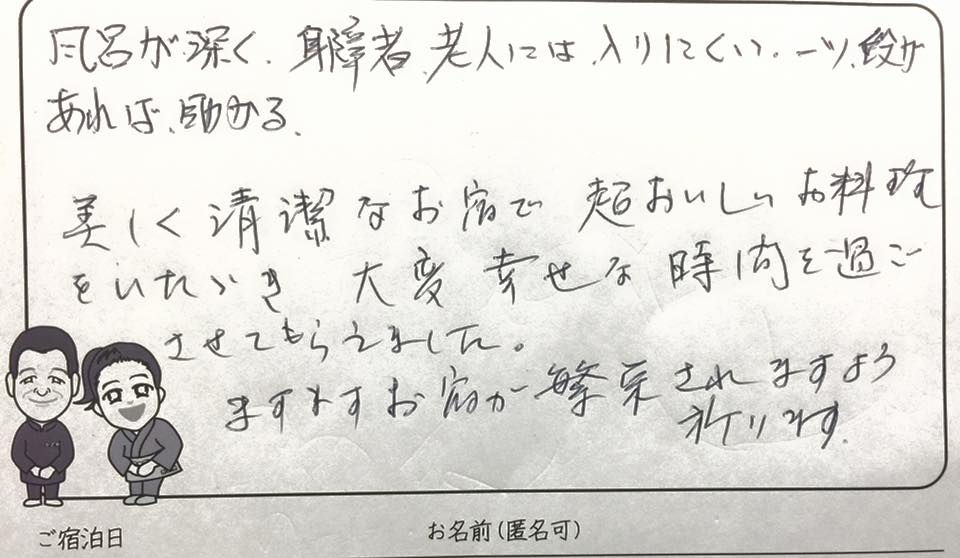 風呂が深く、身障者、老人には、入りにくい、一ツ、段が
あれば、助かる、
美しく清潔なお宿で 超おいしいお料理
をいただき 大変幸せな時間を過ご
させてもらえました。
ますますお宿が繁栄されますよう
祈ります。
ご宿泊日
お名前(匿名可)